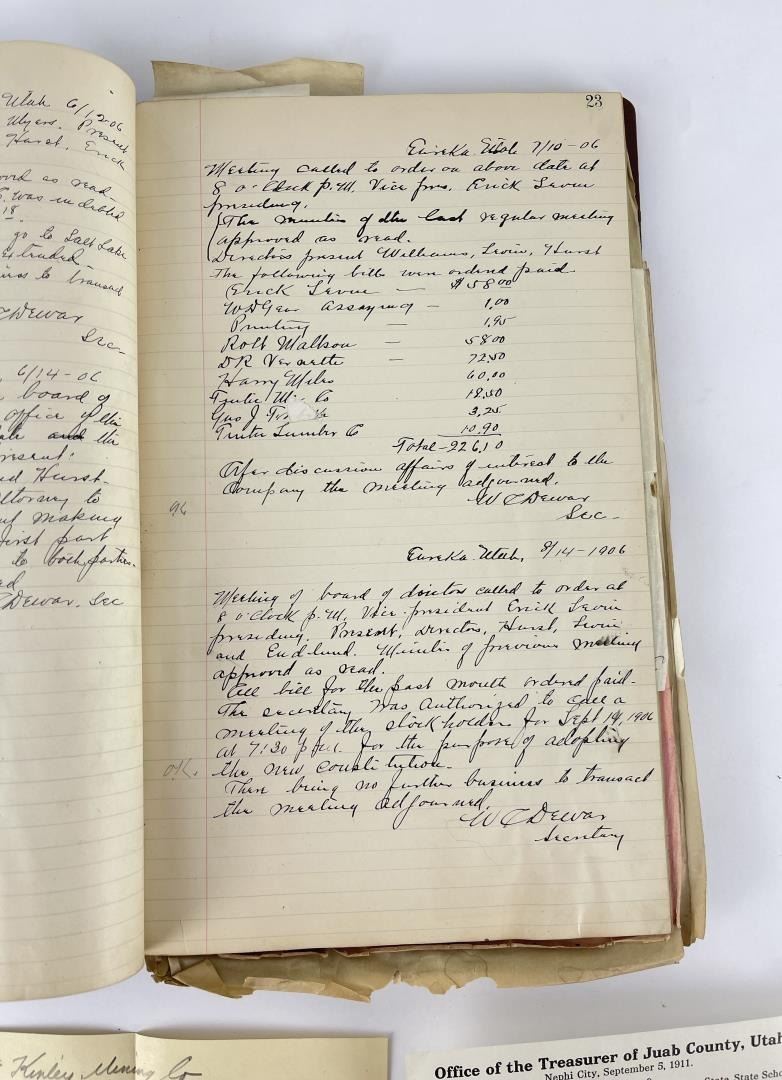 Utah 6/12-06
Myers. Present
Hurst, Erick
as read
was indebted
18.
go to Salt Lake
extended-
to transact
Dewar
Sec-
6/14-06
board of
office of the
and the
resent:
Hurst-
attorney to
making
first part
to both parties-
Dewar. Sec
23
Eureka Utah 7/10-06
Meeting called to order on above date at
8 o'Clock p.M. Vice pres. Erick Levin
presiding.
The minutes of the last regular meeting
approved as read.
Directors present Williams, Levin, Hurst
The following bills were ordered paid
Erick Levin — $58 00
W D Gear Assaying — 1.00
Printing — 1.95
Robt Mattson — 58 00
D R — 72.50
Harry Miles 60.00
Tintic M Co 18.50
Geo J 3.25
Tintic Lumber Co 10.90
Total-226,10
After discussion affairs of interest to the
Company the meeting adjourned.
W C Dewar
Sec-
Eureka. Utah, 8/14-1906
Meeting of board of directors called to order at
8 o'Clock p.M. Vice-president Erick Levin
presiding. Present, Directors, Hurst, Levin
and Endlund. Minutes of previous meeting
approved as read.
bill for the past month ordered paid-
The secretary was Authorized to call a
meeting of the stockholders for Sept 14, 1906
at 7:30 p.m. for the purpose of adopting
O.K. the new constitution-
There being no further business to transact
the meeting adjourned.
W C Dewar
Secretary
Kinley Mining Co
Office of the Treasurer of Juab County, Utah
Nephi City, September 5, 1911.
State, State